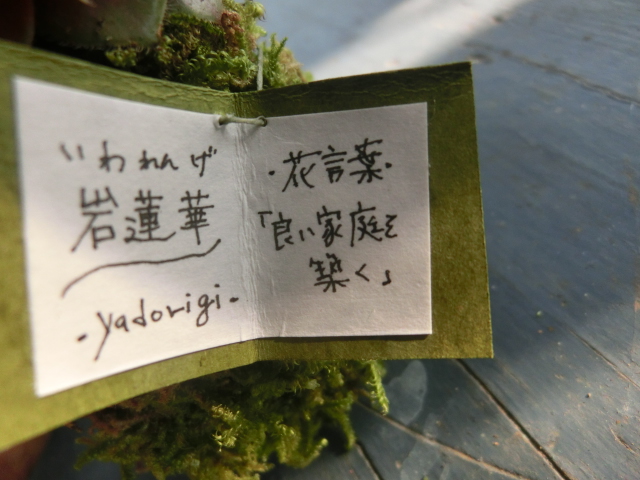 いわれんげ
岩蓮華
・yadorigi・
・花言葉・
「良い家庭を
築く」